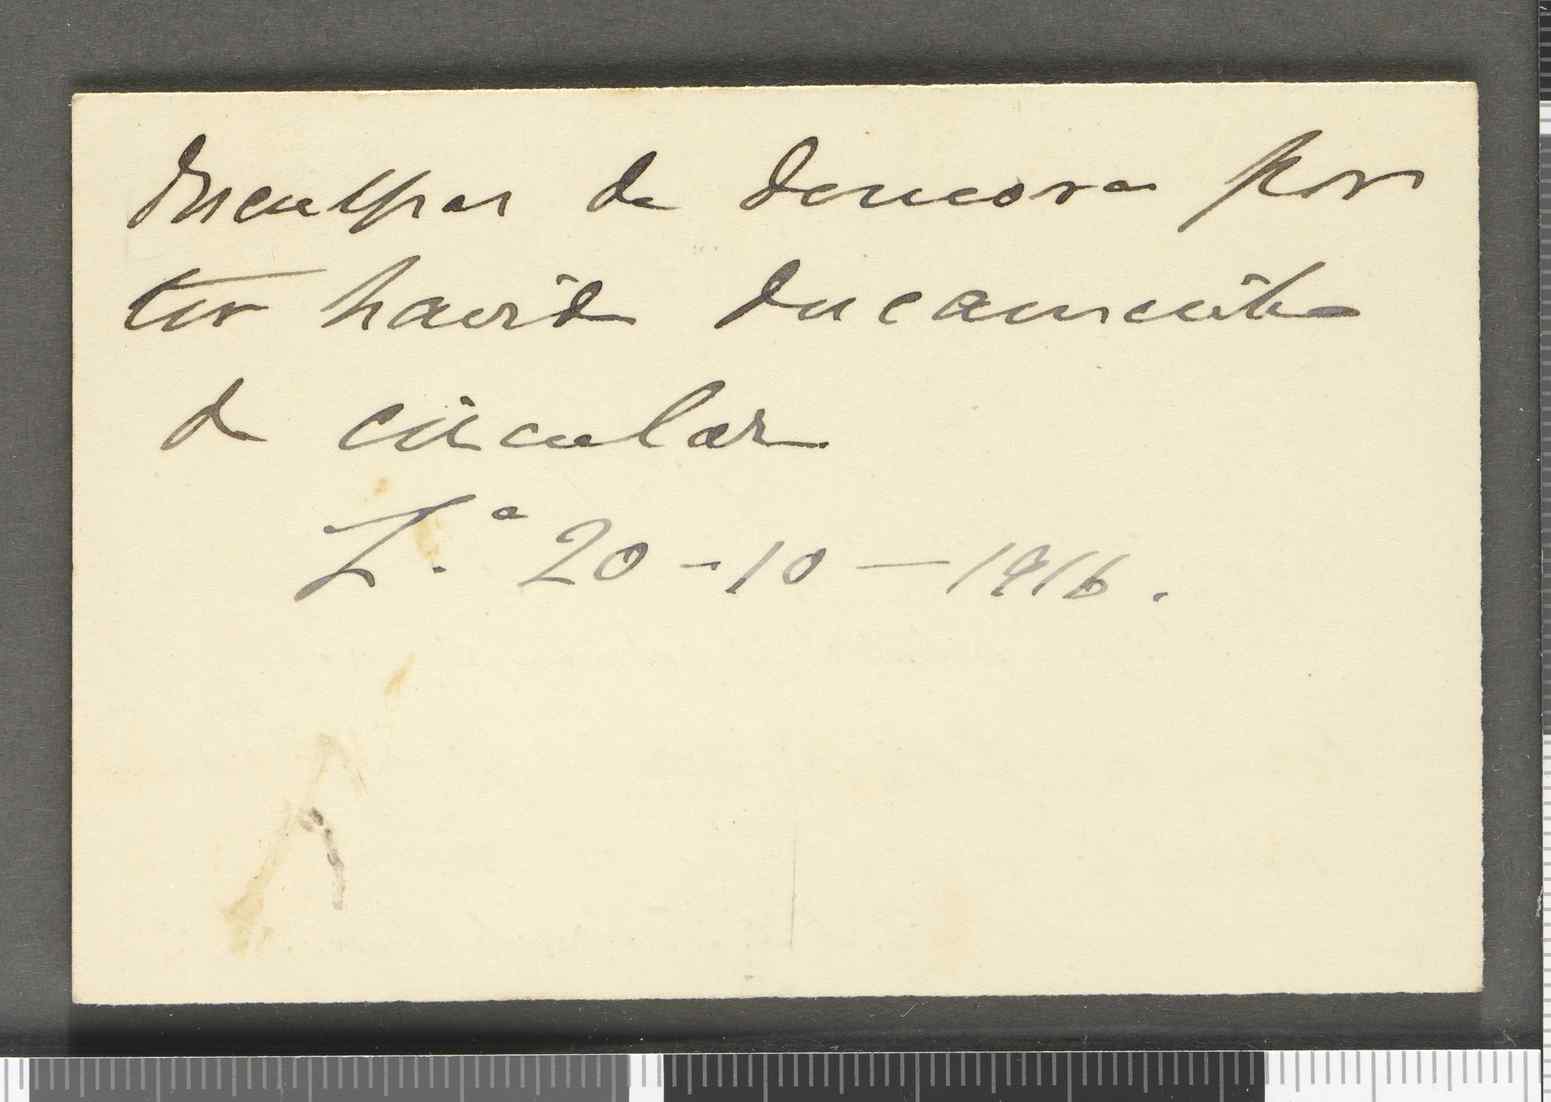 desculpas da demora por
ter havido descaminho
da circular
L.ª 20-10-1916.